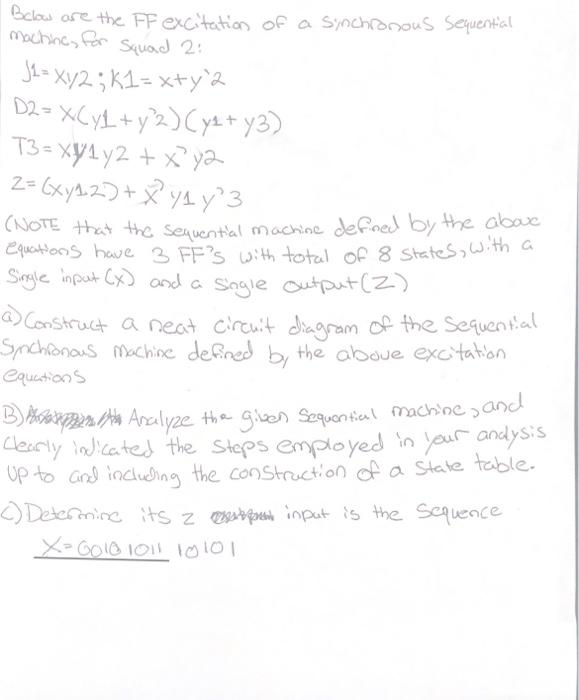 Below are the FF excitation of a synchronous sequential
machine, for squad 2:
J1= xy2 ; K1= x+y'2
D2= x(y1+y'2)(y1+y3)
T3= xy1y2 + x'y2
Z= (xy1.2)+ x'y1y'3
(NOTE that the sequential machine defined by the above
equations have 3 FF's with total of 8 states, with a
single input (x) and a single output (Z)
a) Construct a neat circuit diagram of the sequential
Synchronous machine defined by the above excitation
equations
B) Analyze the given sequential machine, and
clearly indicated the steps employed in your analysis
up to and including the construction of a state table.
C) Determine its z input is the sequence
X= 00101011 10101